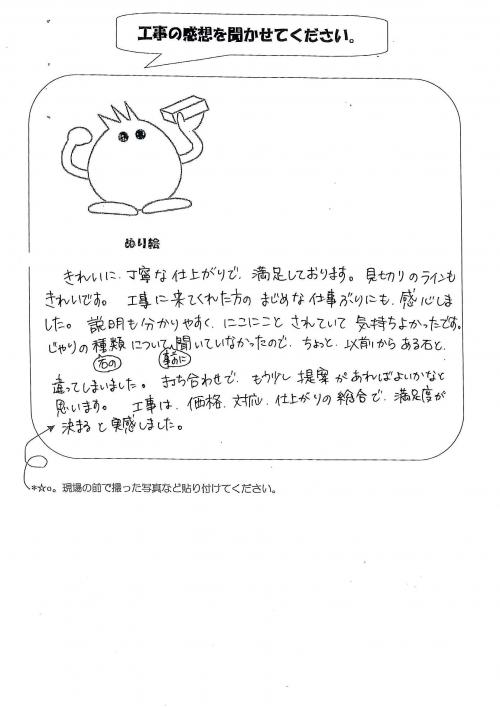 工事の感想を聞かせてください。
ぬり絵
きれいに、丁寧な仕上がりで、満足しております。見切りのラインも
きれいです。工事に来てくれた方の まじめな仕事ぶりにも、感心しま
した。説明も分かりやすく、にこにこと されていて 気持ちよかったです。
じゃりの種類について、聞いていなかったので、ちょっと、以前からある石と、
石の 事前に
違ってしまいました。打ち合わせで、もう少し 提案があればよいかなと
思います。工事は、価格、対応、仕上がりの総合で、満足度が
決まると実感しました。
*☆○。現場の前で撮った写真など貼り付けてください。